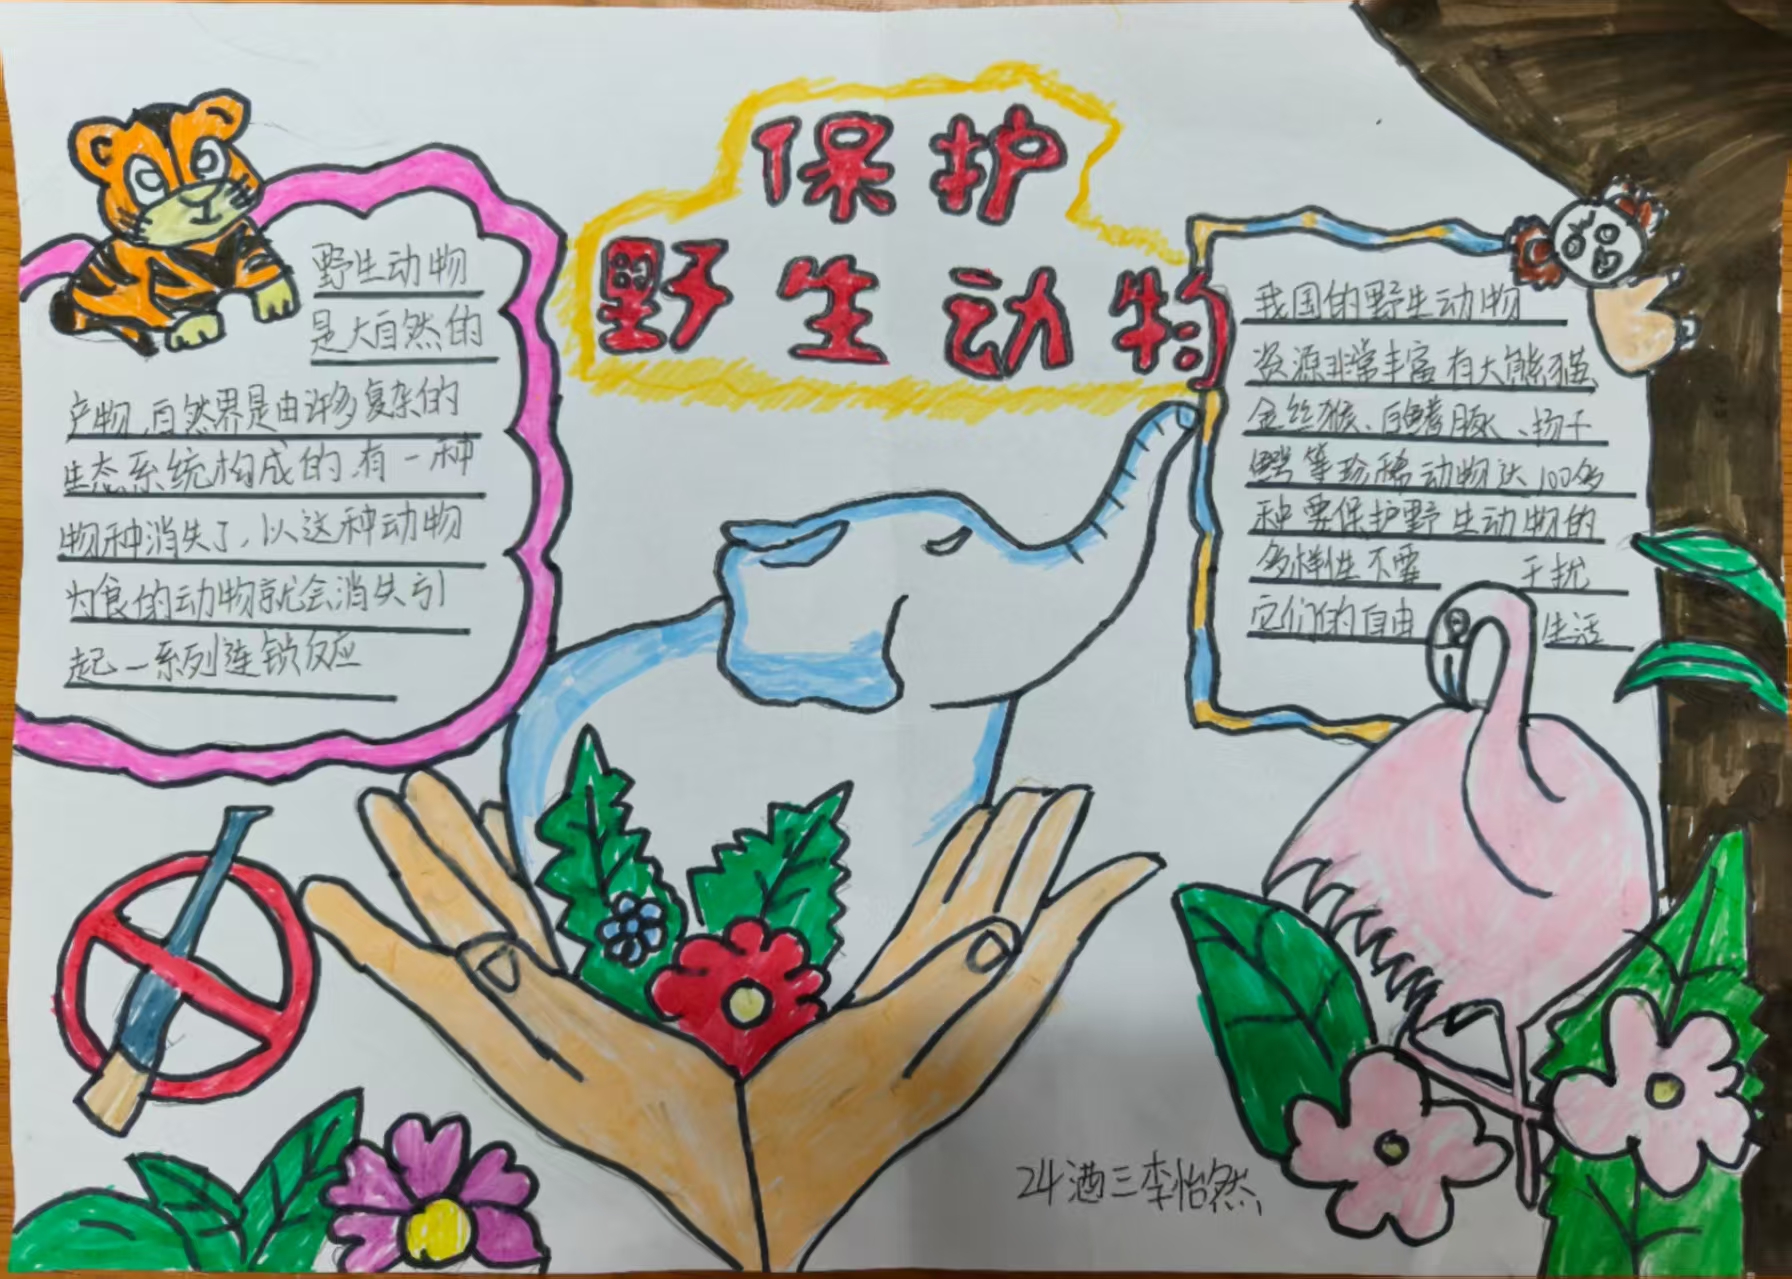 保护
野生动物
野生动物
是大自然的
产物,自然界是由许多复杂的
生态系统构成的.有一种
物种消失了,以这种动物
为食的动物就会消失引
起一系列连锁反应
我国的野生动物
资源非常丰富有大熊猫、
金丝猴、白鳍豚、扬子
鳄等珍稀动物达100多
种要保护野生动物的
多样性不要 干扰
它们的自由 生活
24酒三李怡然